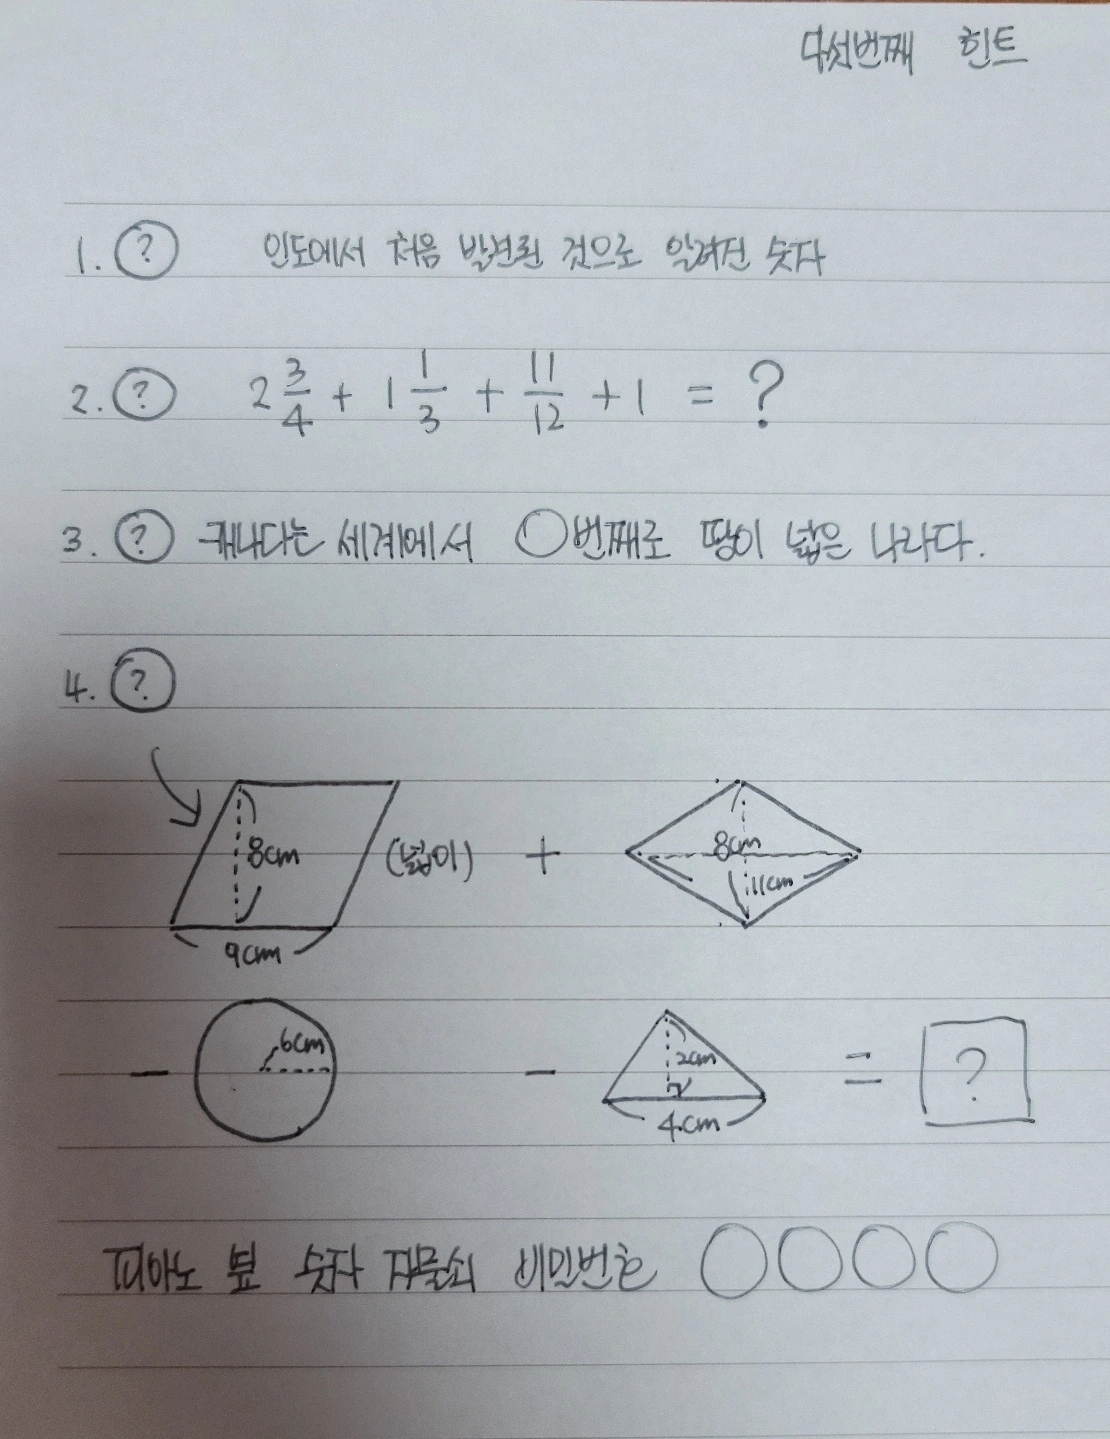 다섯번째 힌트
1. ? 인도에서 처음 발견된 것으로 알려진 숫자
2. ? 2 3/4 + 1 1/3 + 11/12 + 1 = ?
3. ? 캐나다는 세계에서 ○번째로 땅이 넓은 나라다.
4. ?
8cm (넓이) + 8cm 11cm
9cm
- 6cm - 2cm = ?
4cm
피아노 옆 숫자 자물쇠 비밀번호 ○○○○